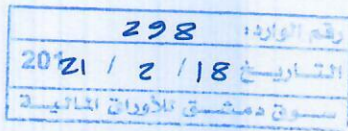 رقم الوارد: 298
التاريخ 18 / 2 / 2021
سوق دمشق للأوراق المالية